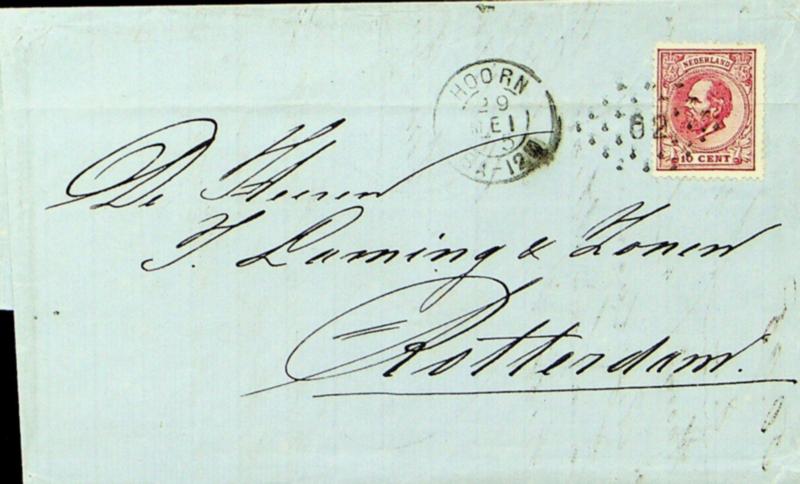 HOORN
29
MEI
5
8A-12M
NEDERLAND
62
10 CENT
De Heeren
J. Laming & Zonen
Rotterdam.